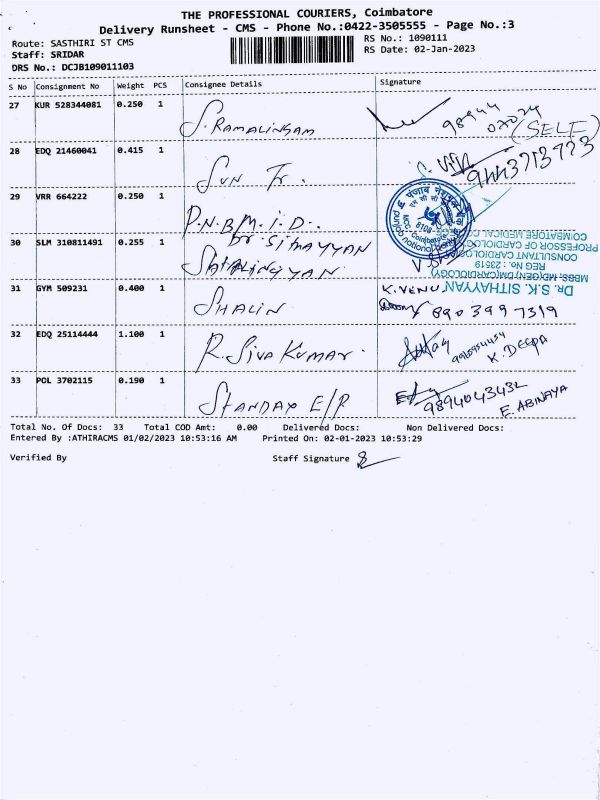 THE PROFESSIONAL COURIERS, Coimbatore
Delivery Runsheet - CMS - Phone No.:0422-3505555 - Page No.:3
Route: SASTHIRI ST CMS
RS No.: 1090111
Staff: SRIDAR
RS Date: 02-Jan-2023
DRS No.: DCJB109011103
S No Consignment No Weight PCS Consignee Details Signature
27 KUR 528344081 0.250 1 S.RAMALINGAM 98944
07024
(SELF)
28 EDQ 21460041 0.415 1 SUN Tr. 9443713773
29 VRR 664222 0.250 1 P.N.B.M.I.D.
30 SLM 310811491 0.255 1 Dr. SITHAYYAN
DR. S.K. SITHAYYAN,
MBBS.,MD(GEN)DM(CARDIOLOGY)
REG No. : 23519
CONSULTANT CARDIOLOGIST
PROFESSOR OF CARDIOLOGY
COIMBATORE MEDICAL
punjab national bank
31 GYM 509231 0.400 1 SHALIN K.VENU
8903997319
32 EDQ 25114444 1.100 1 R. SIVA KUMAR
K DEEPA
33 POL 3702115 0.190 1 STANDAX E/P 9894043432
E. ABINAYA
Total No. Of Docs: 33 Total COD Amt: 0.00 Delivered Docs: Non Delivered Docs:
Entered By :ATHIRACMS 01/02/2023 10:53:16 AM Printed On: 02-01-2023 10:53:29
Verified By Staff Signature